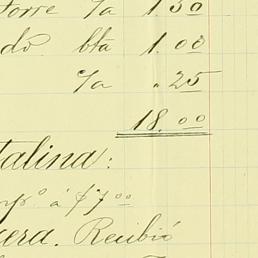 Torre c/a 1.50
do. bta 1.00
c/a .25
18.00
talina:
á $7.00
era. Recibió